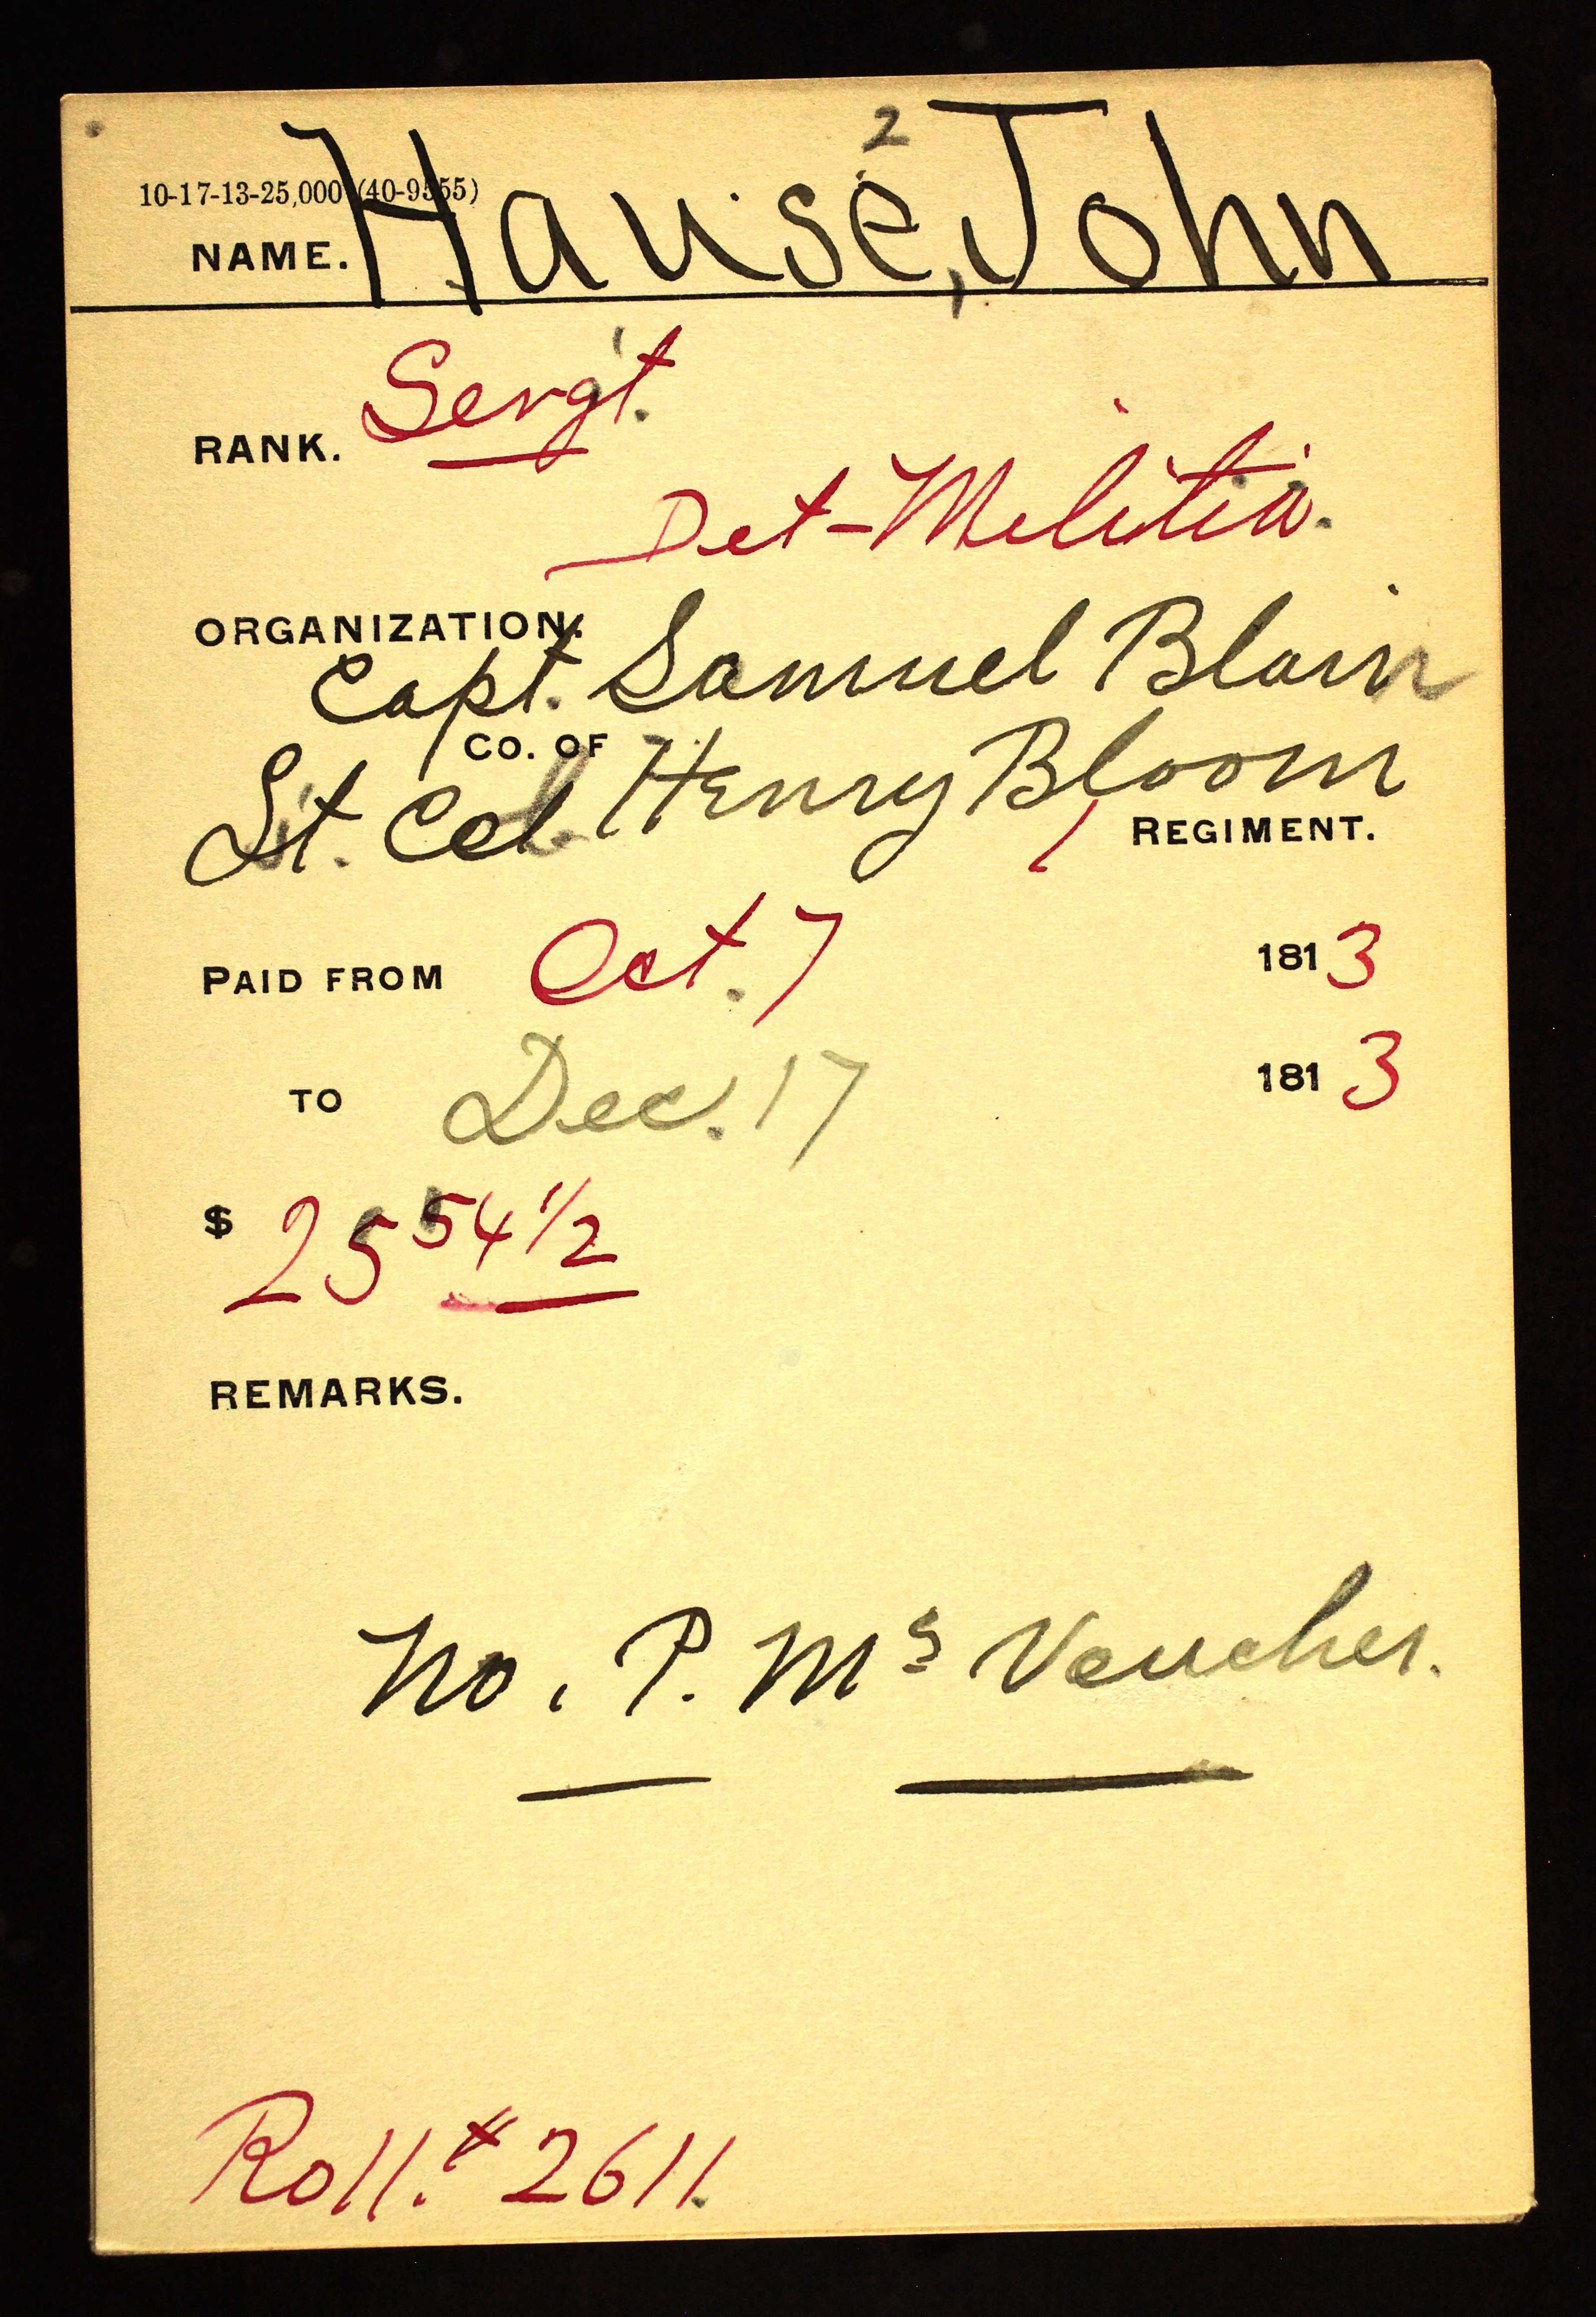 2
10-17-13-25,000 (40-9555)
NAME. Hause, John
RANK. Sergt.
Det-Militia.
ORGANIZATION.
Capt. Samuel Blain
CO. OF
Lt. Col. Henry Bloom
REGIMENT.
PAID FROM Oct. 7 1813
TO Dec. 17 1813
$ 25 54 1/2
REMARKS.
No. P. Ms Voucher.
Roll. # 2611.